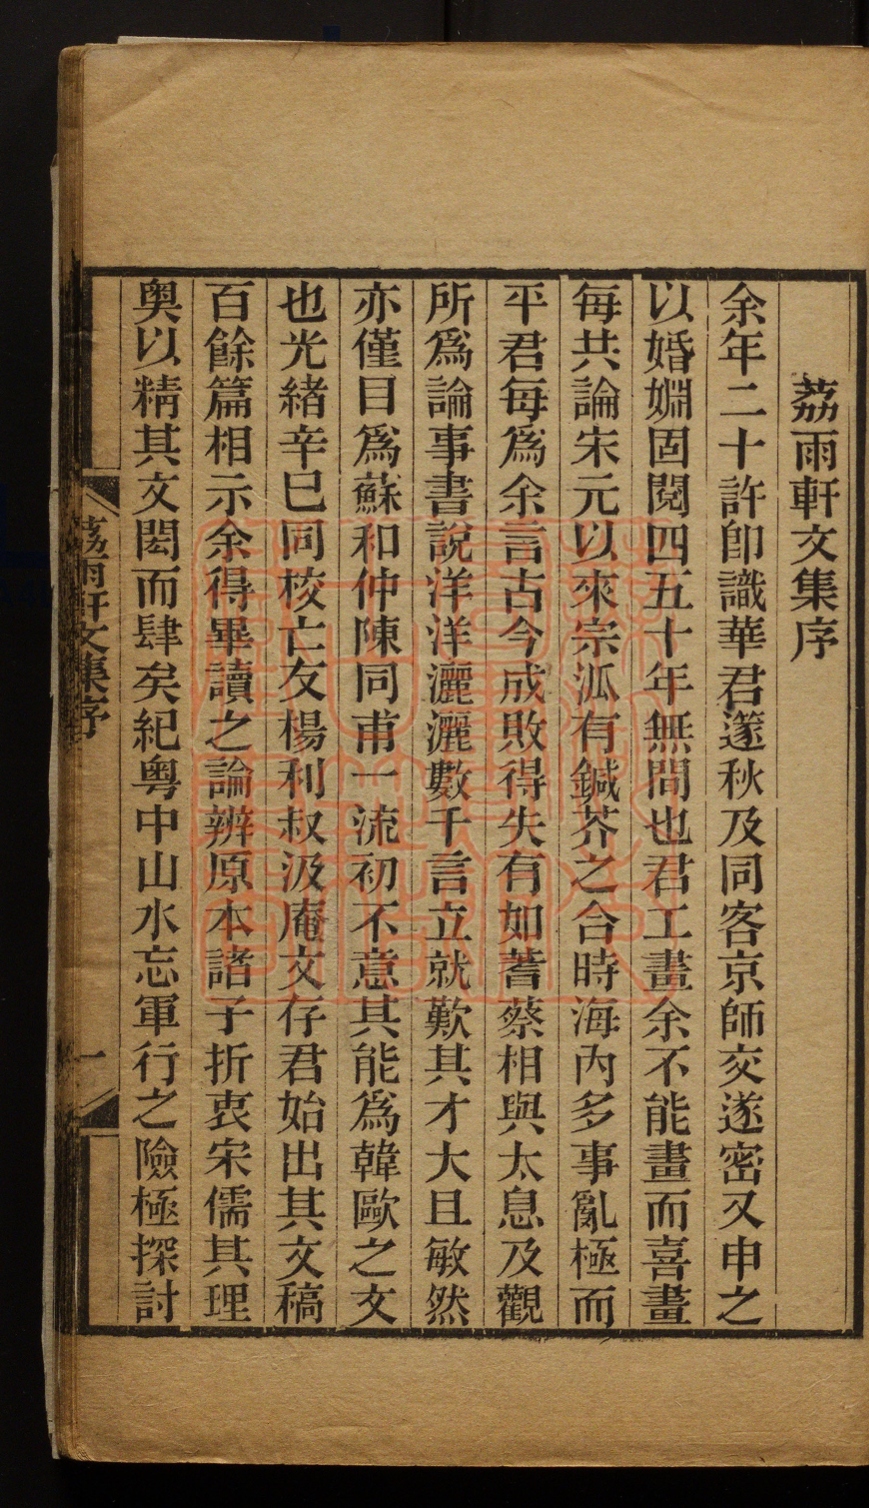 荔雨軒文集序
余年二十許卽識華君篴秋及同客京師交遂密又申之
以婚婣固閱四五十年無間也君工畫余不能畫而喜畫
每共論宋元以來宗泒有鍼芥之合時海內多事亂極而
平君每爲余言古今成敗得失有如蓍蔡相與太息及觀
所爲論事書說洋洋灑灑數千言立就歎其才大且敏然
亦僅目爲蘇和仲陳同甫一流初不意其能爲韓歐之文
也光緒辛巳同校亡友楊利叔汲庵文存君始出其文稿
百餘篇相示余得畢讀之論辨原本諸子折衷宋儒其理
奧以精其文閎而肆矣紀粤中山水忘軍行之險極探討
荔雨軒文集序
一